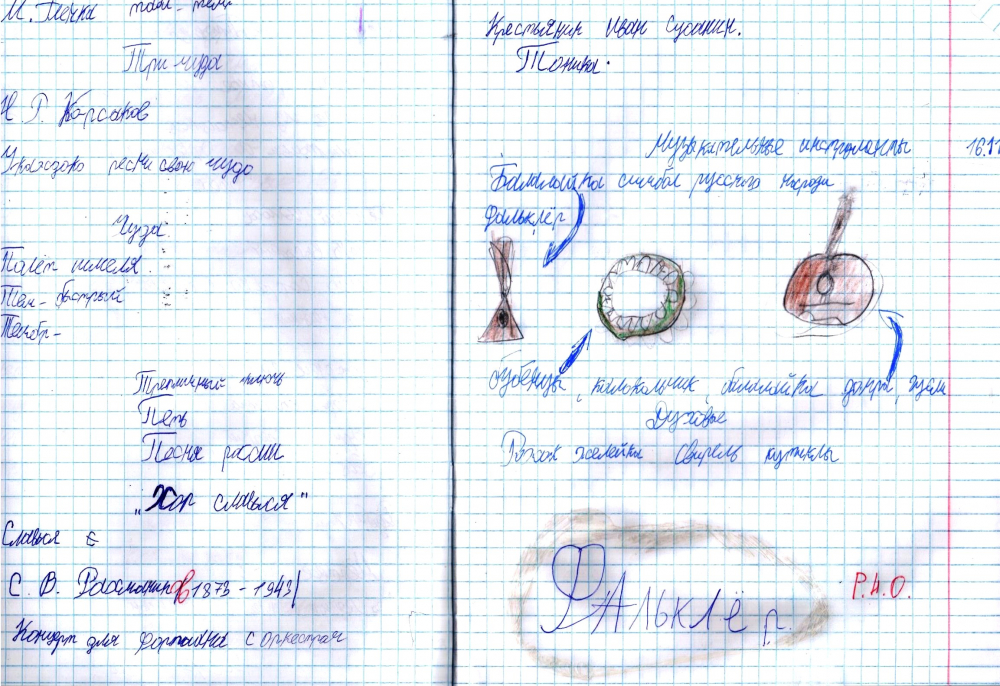 М. Печка
Три чуда
Н Г. Корсаков
У каждого песни свою чудо
Чуда
Полёт шмеля
Тем - быстрый
Тембр -
ключь
Петь
Песня расии
„Хор славься"
Славься
С. В. Рахманинов 1873 - 1943
Концерт для фортпиана с оркестрам
Крестьянин Иван Сусанин.
Тоника.
Музыкательные инструманты 16.11
Балалайка символ русского народа
Фальклёр
бубенцы, колокольчик, балалайка домра, гусли
Духовые
Рожок жалейка Свирель кугиклы
ФАльклёр.
Р.Н.О.